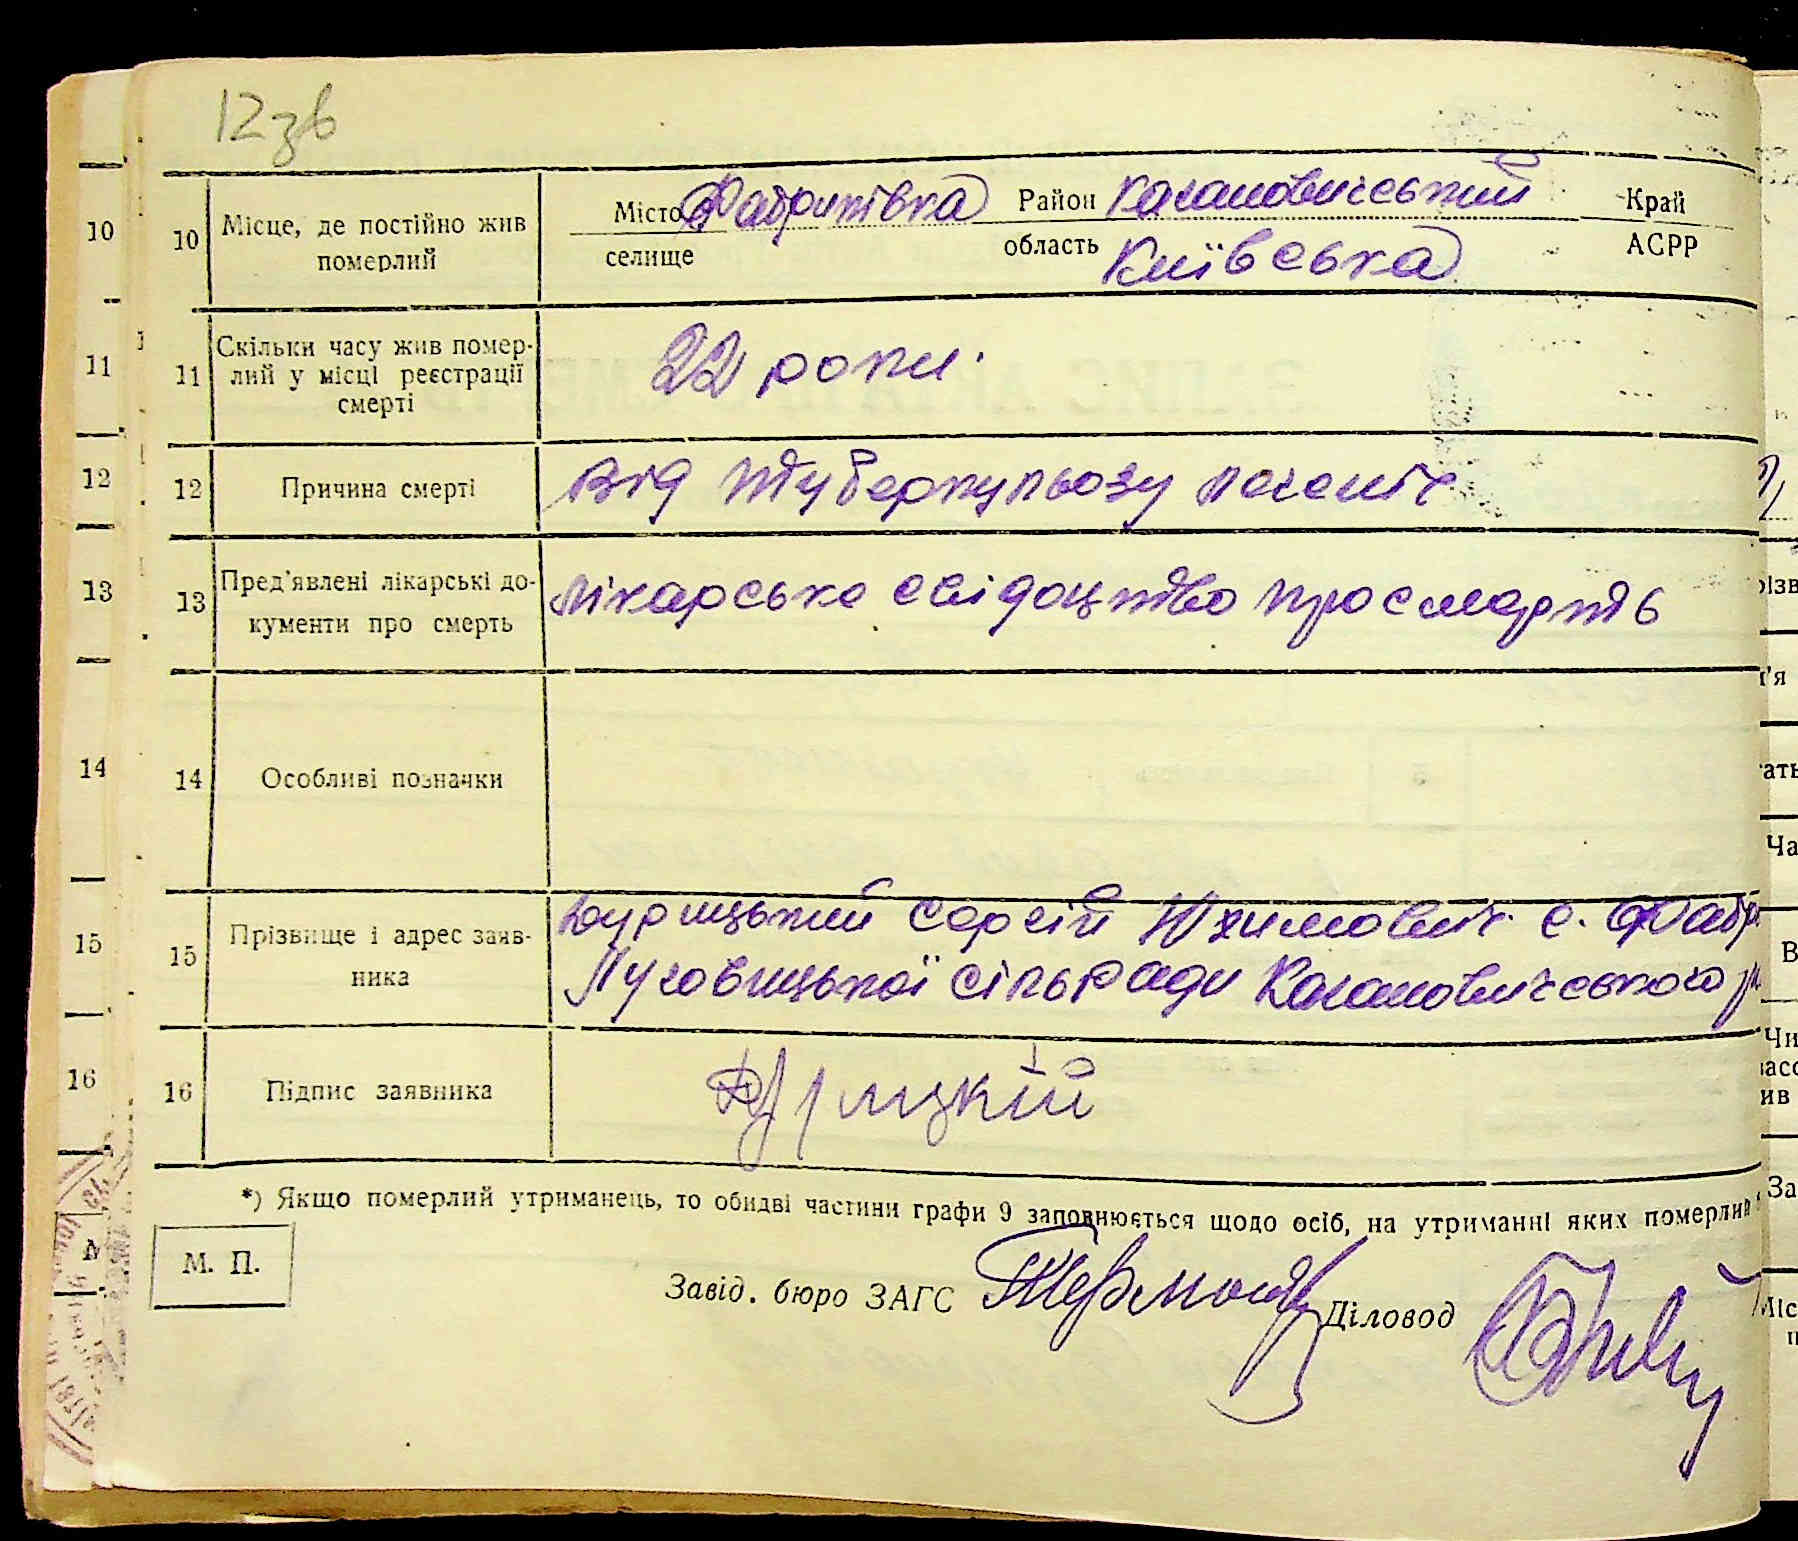 12зв
10 10 Місце, де постійно жив померлий Місто селище Фабриківка Район Кагановичський область Київська Край АСРР
11 11 Скільки часу жив помер-
лий у місці реєстрації
смерті
22 роки.
12 12 Причина смерті від туберкульозу легенів
13 13 Пред'явлені лікарські до-
кументи про смерть
лікарське свідоцтво про смерть
14 14 Особливі позначки
15 15 Прізвище і адрес заяв-
ника
Сергій Юхимович с. Фабр
Луговицької сільради Кагановичського р.
16 16 Підпис заявника
*) Якщо померлий утриманець, то обидві частини графи 9 заповнюється щодо осіб, на утриманні яких померлий
М. П.
Завід. бюро ЗАГС Діловод